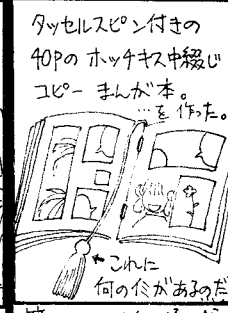 タッセルスピン付きの
40Pの ホッチキス中綴じ
コピー まんが本。
…を 作った。
←これに
何のイミがあるのだ